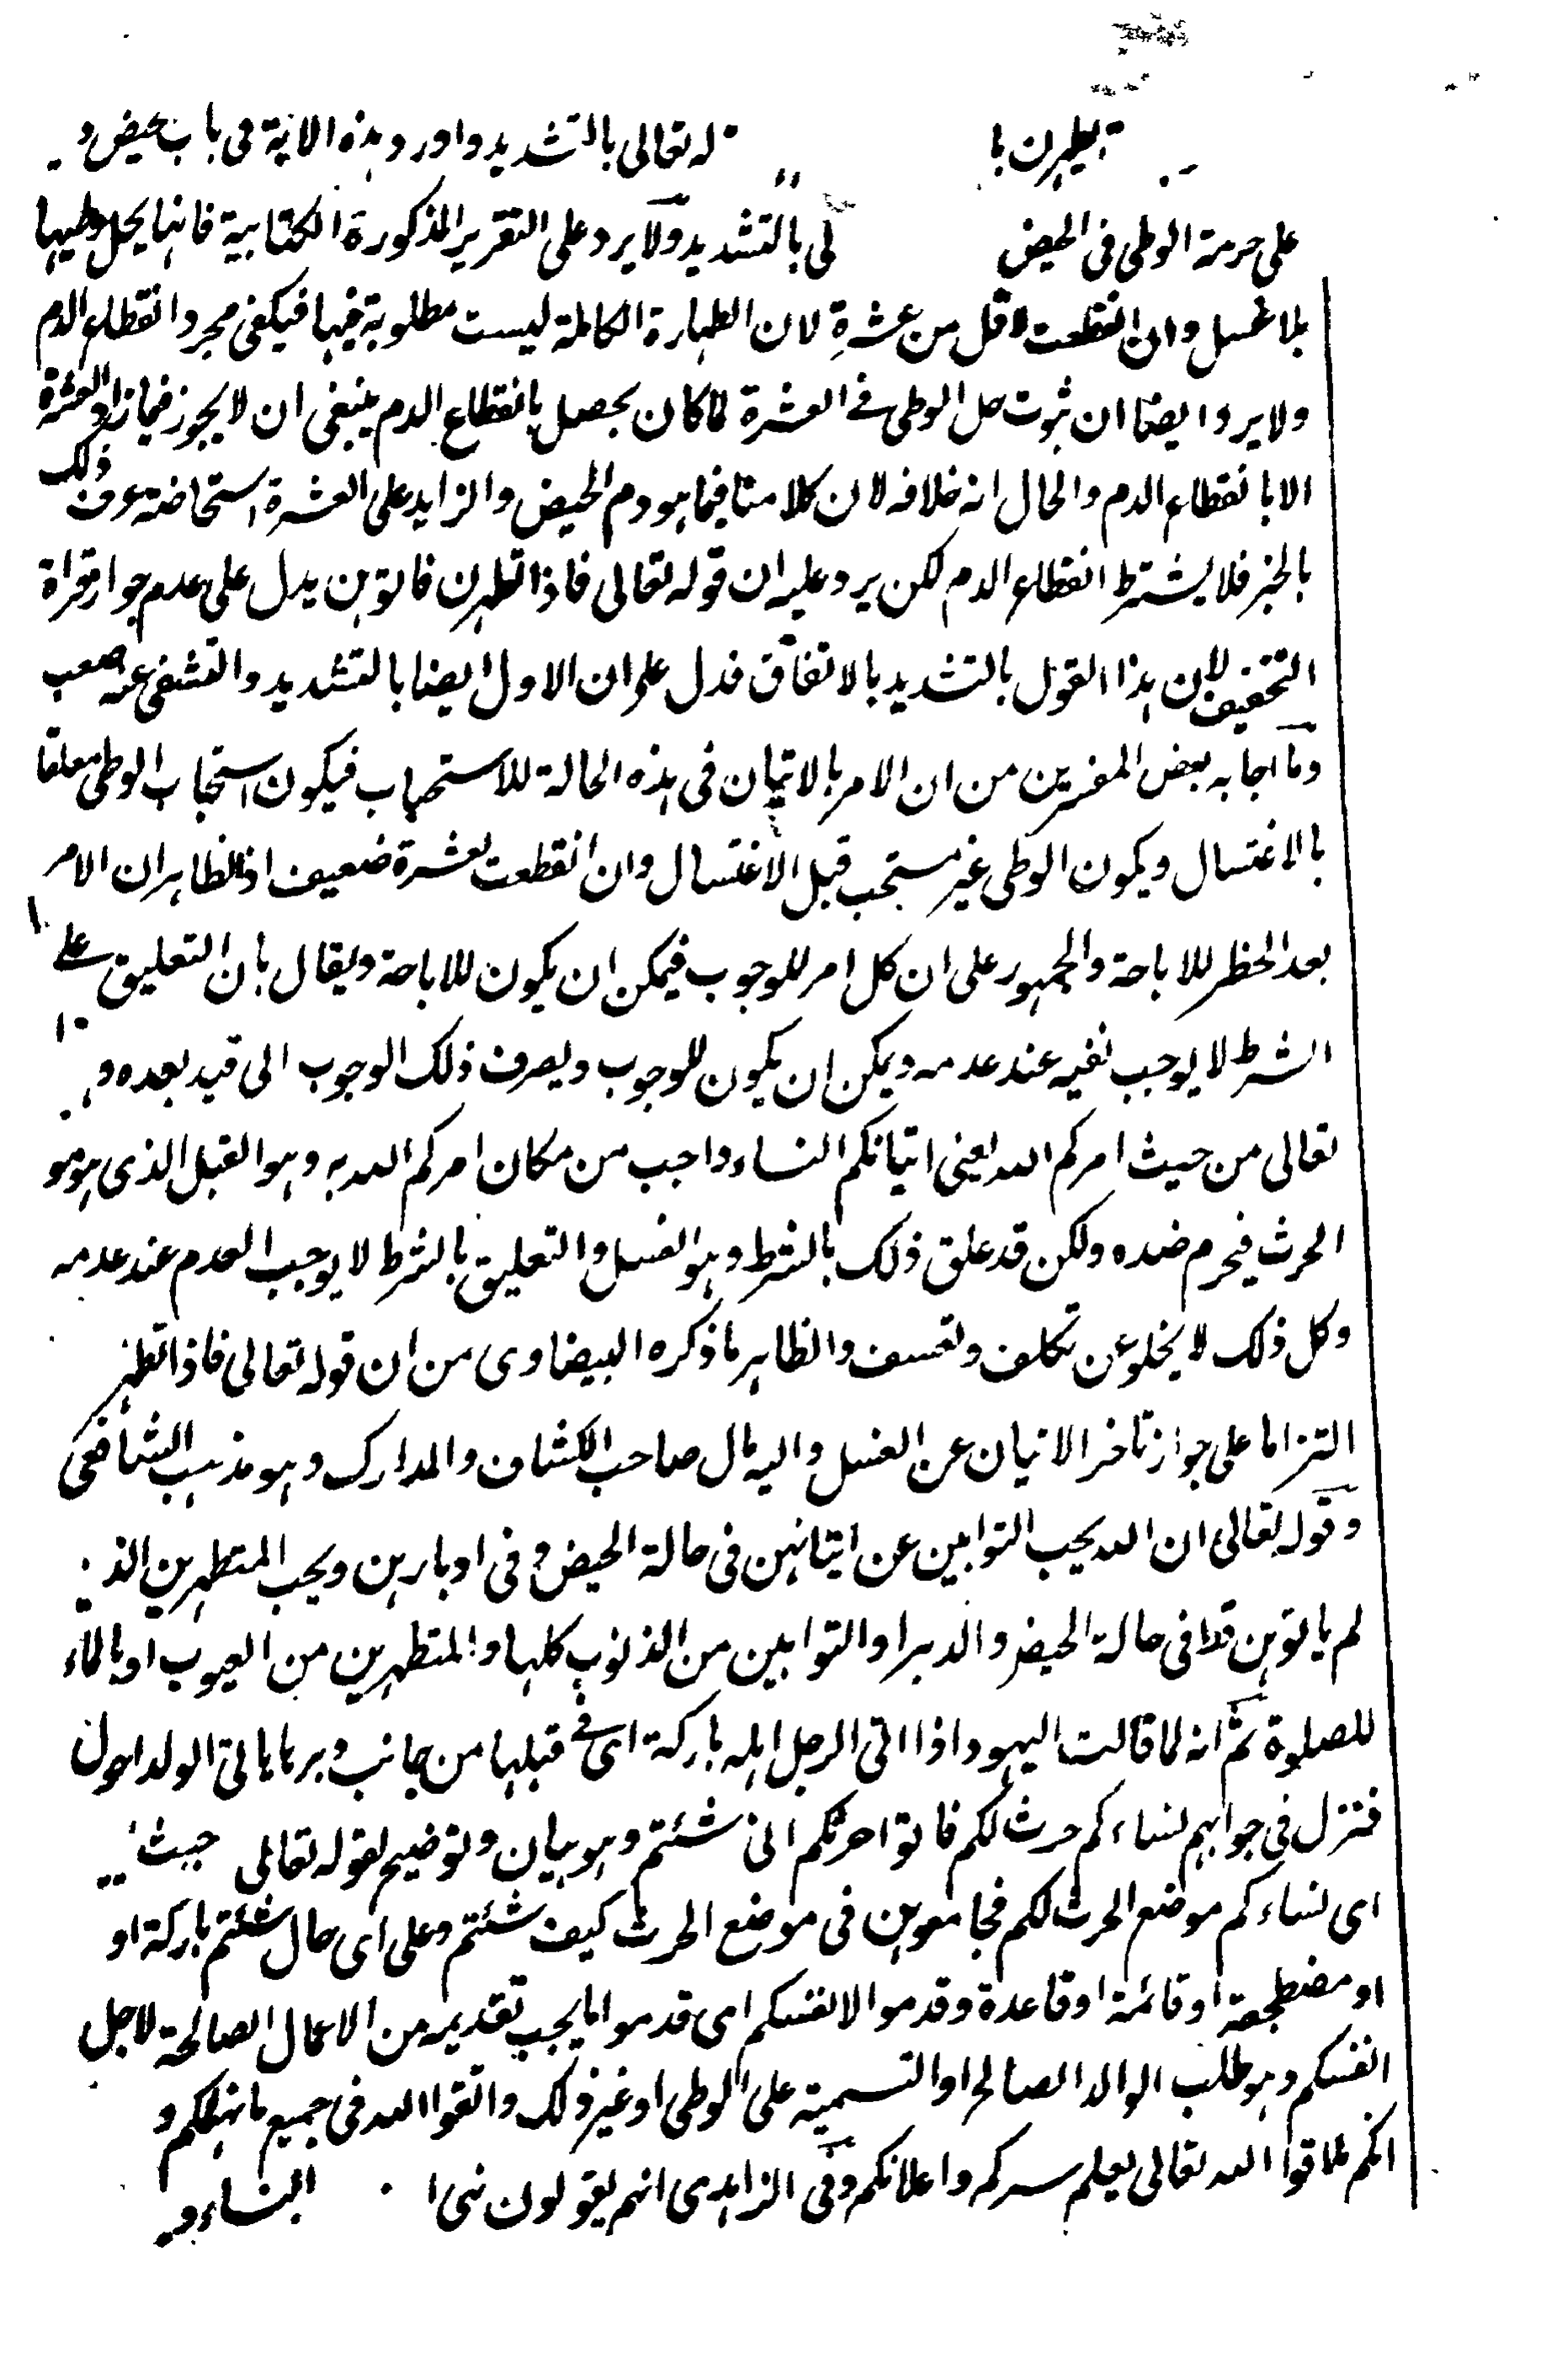 يطهرن با له تعالى بالتشديد واورد هذه الاية فى باب الحيض و
على حرمة الوطى فى الحيض لى بالتشديد ولا يرد على التقرير المذكورة الكتابية فانها يحل وطيها
بلا غسل وان انقطعت لاقل من عشرة لان الطهارة الكاملة ليست مطلوبة فيها فيكفى مجرد انقطاع الدم
ولا يرد ايضا ان ثبوت حل الوطى فے العشرة لما كان يحصل بانقطاع الدم ينبغى ان لا يجوز فيما زاد العشرة
الا بانقطاع الدم والحال انه خلافه لان كلامنا فيما هو دم الحيض والزايد على العشرة استحاضة عرف ذلك
بالخبر فلا يشترط انقطاع الدم لكن يرد عليه ان قوله تعالى فاذا تطهرن فاتوهن يدل على عدم جواز قراة
التخفيف لان هذا القول بالتشديد بالاتفاق فدل على ان الاول ايضا بالتشديد والتشفى عنه صعب
وما اجابه بعض المفسرين من ان الامر بالاتيان فى هذه الحالة للاستحباب فيكون استحباب الوطى معلقا
بالاغتسال ويكون الوطى غير مستحب قبل الاغتسال وان انقطعت لعشرة ضعيف اذ الظاهر ان الامر
بعد الحظر للاباحة والجمهور على ان كل امر للوجوب فيمكن ان يكون للاباحة ويقال بان التعليق علے
الشرط لا يوجب نفيه عند عدمه ويمكن ان يكون للوجوب ويصرف ذلك الوجوب الى قيد بعده و
تعالى من حيث امركم الله يعنى اتيانكم النساء واجب من مكان امركم الله به وهو القبل الذى هو مو
الحرث فيحرم ضده ولكن قد علق ذلك بالشرط وهو الغسل والتعليق بالشرط لا يوجب العدم عند عدمه
وكل ذلك لا يخلو عن تكلف وتعسف والظاهر ما ذكره البيضاوى من ان قوله تعالى فاذا تطهر
التزاما على جواز تاخر الاتيان عن الغسل واليه مال صاحب الكشاف والمدارك وهو مذهب الشافعى
وقوله تعالى ان الله يحب التوابين عن اتيانهن فى حالة الحيض و فى ادبارهن ويحب المتطهرين الذ
لم ياتوهن قط فى حالة الحيض والدبر او التوابين من الذنوب كلها والمتطهرين من العيوب او بالماء
للصلوة ثم انه لما قالت اليهود اذا اتى الرجل اهله باركة اى فے قبلها من جانب دبرها ياتى الولد احول
فنزل فى جوابهم نساءكم حرث لكم فاتوا حرثكم انى شئتم وهو بيان وتوضيح لقوله تعالى حيث
اى نساءكم موضع الحرث لكم فجامعوهن فى موضع الحرث كيف شئتم وعلى اى حال شئتم باركة او
او مضطجعة او قائمة او قاعدة وقدموا لانفسكم اى قدموا ما يجب تقديمه من الاعمال الصالحة لاجل
انفسكم وهو طلب الوالد الصالح او التسمية على الوطى او غير ذلك واتقوا الله فى جميع ما نهاكم و
انكم ملاقوا الله تعالى يعلم سركم واعلانكم وفى الزاهدى انهم يقولون نى ا النساء و